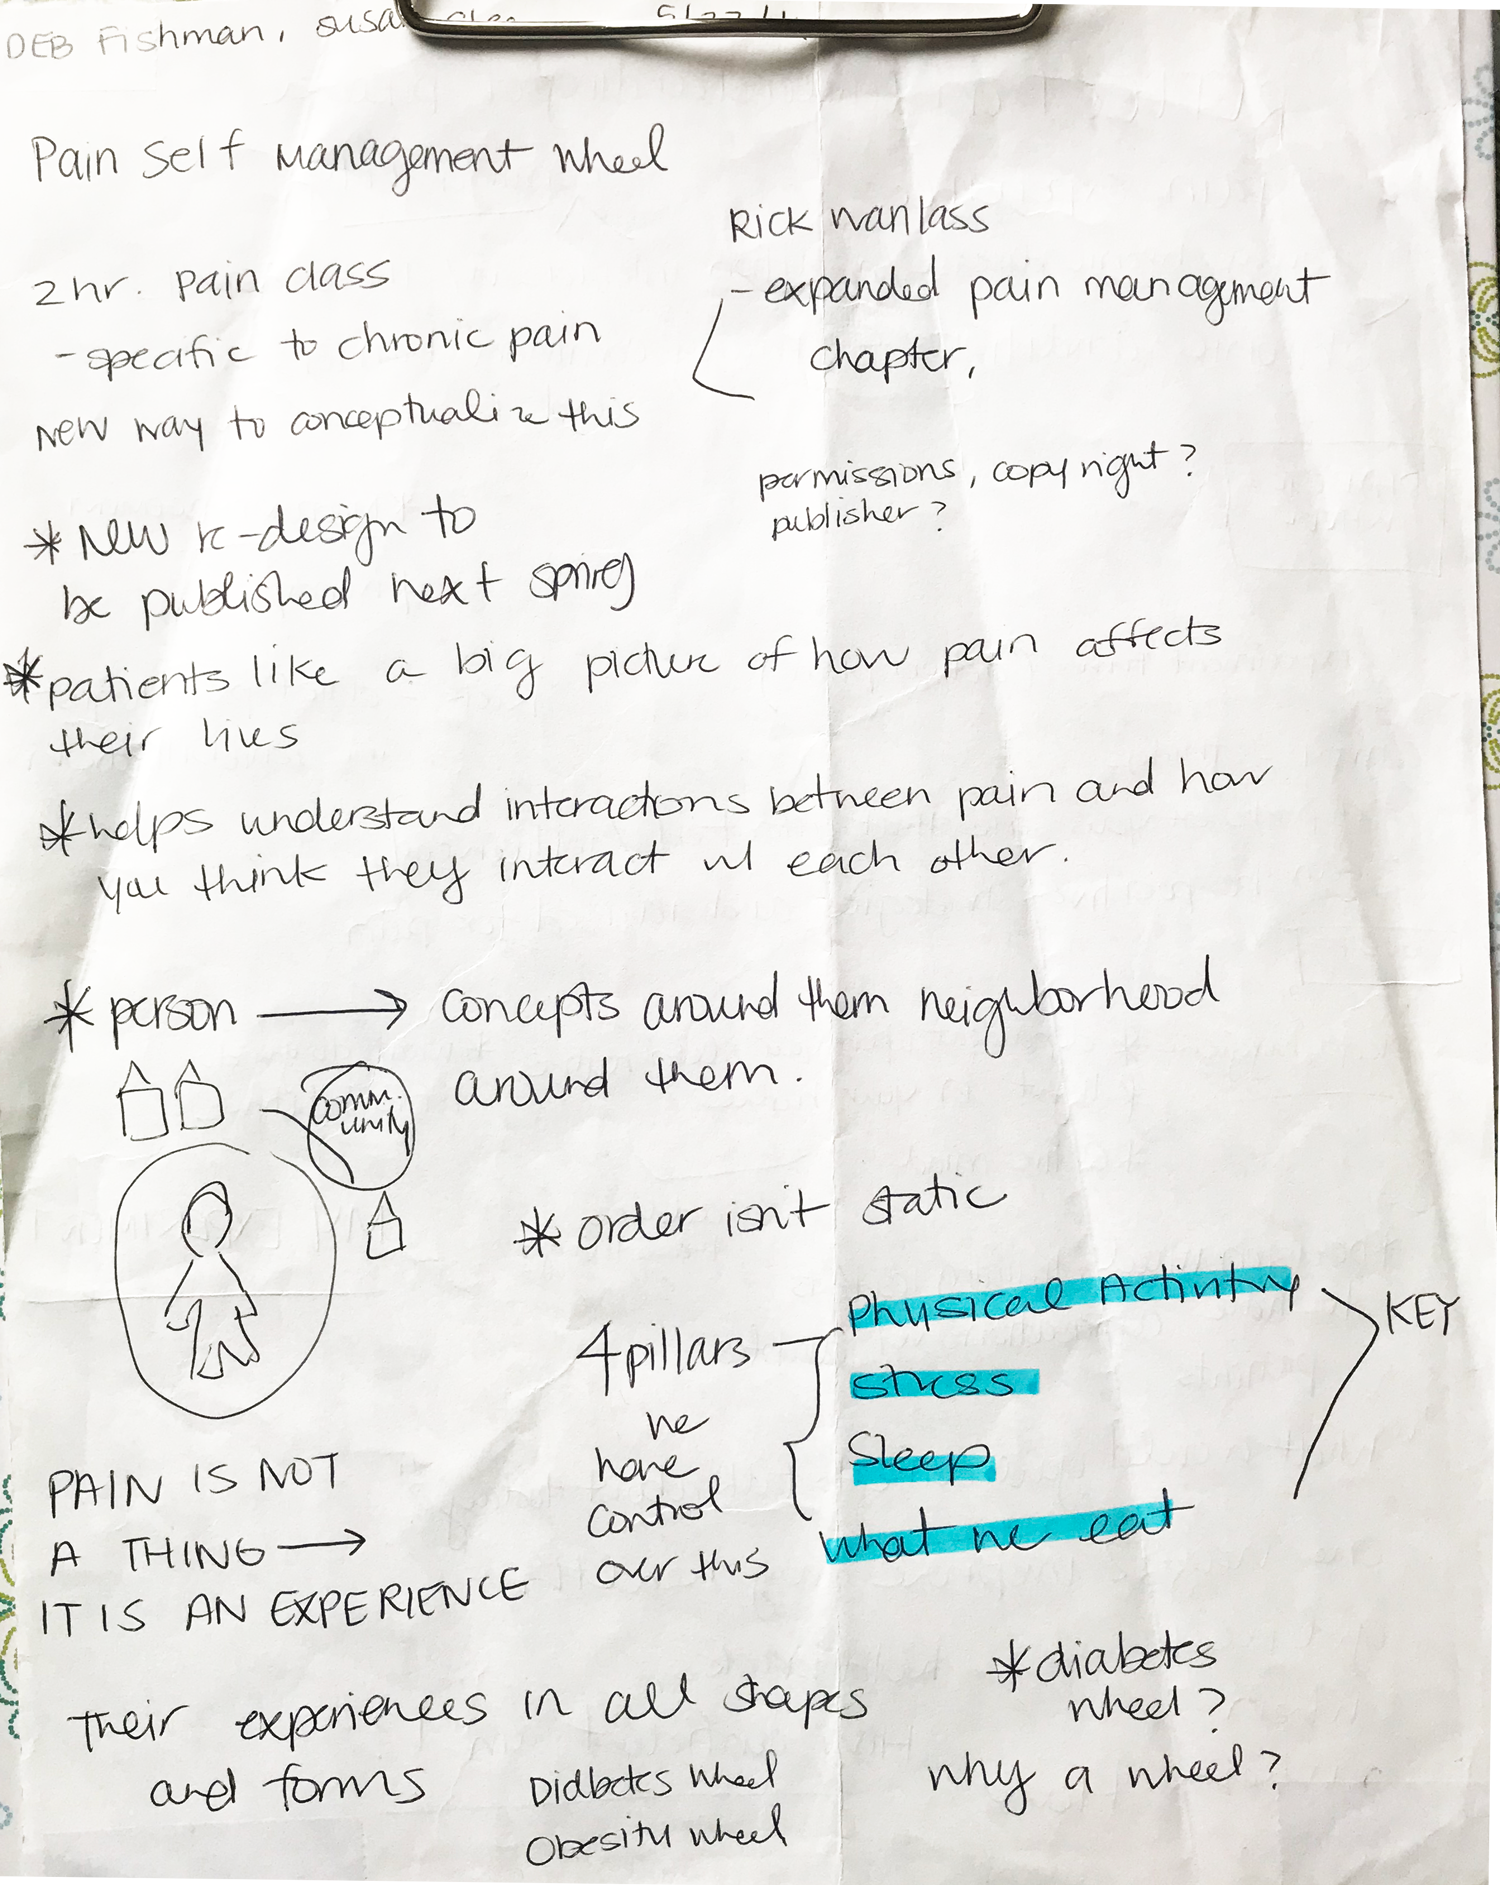 DEB Fishman,
Pain Self Management Wheel
2 hr. pain class
- specific to chronic pain
New way to conceptualize this
Rick Wanlass
- expanded pain management
chapter,
permissions, copyright?
publisher?
* New re-design to
be published next spring
* patients like a big picture of how pain affects
their lives
* helps understand interactions between pain and how
you think they interact w/ each other.
* person → concepts around them neighborhood
around them.
comm.
unity
* order isn't static
4 pillars
we
have
control
over this
Physical Activity
stress
Sleep
What we eat
KEY
PAIN IS NOT
A THING →
IT IS AN EXPERIENCE
Their experiences in all shapes
and forms
Diabetes Wheel
Obesity Wheel
* diabetes
wheel?
why a wheel?